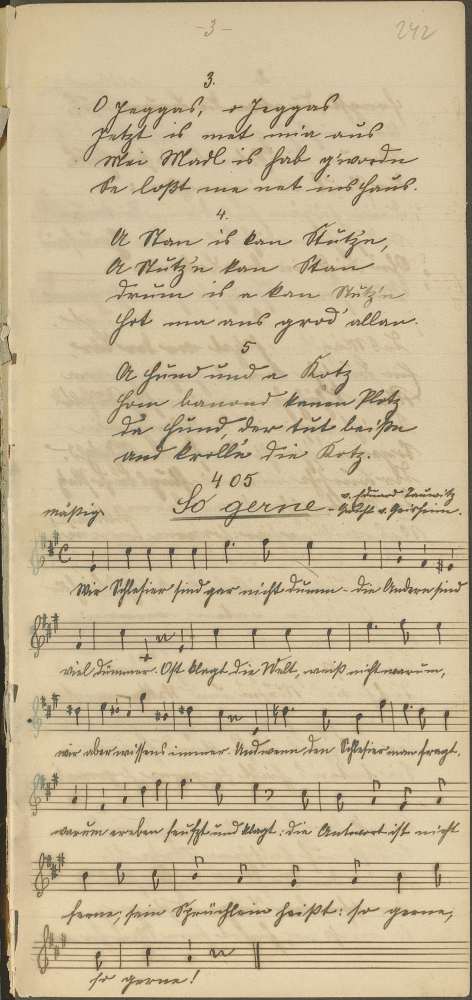 -3-
242
3.
O Jeggas, o Jeggas
Jetzt is met mia aus
Mei Madl is hab g'wordn
Se loßt me net ins Haus.
4.
A Stan is kan Stutz'n,
A Stutz'n kan Stan
Drum is a kan Stutz'n
Hot ma ans grod' allan.
5
A Hund und a Kotz
Hom banond kenen Plotz
Da Hund, der tut beißn
und krolln die Kotz.
405
mäßig.
So gerne
v. Eduard Tauwitz
Wir Schlesier sind gar nicht dumm - die Andern sind
viel dümmer. Oft klagt die Welt, weiß nicht warum,
wir aber wissens immer. Und wenn den Schlesier man fragt,
warum er eben seufzt und klagt: die Antwort ist nicht
ferne, sein Sprüchlein heißt: so gerne,
so gerne!